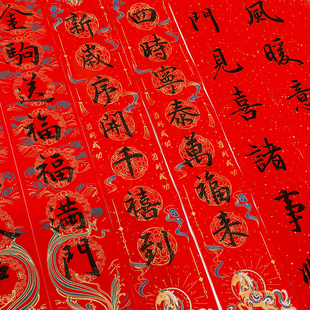 風暖意
門見喜諸事順
四時寧泰萬福來
新歲序開千禧到
金駒送福福滿門